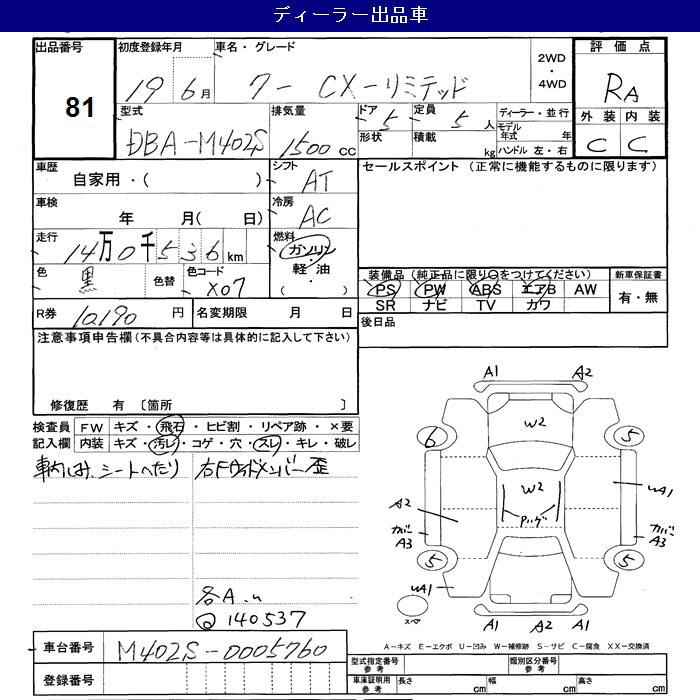 ディーラー出品車
出品番号 初度登録年月 車名・グレード 2WD・4WD 評価点
81 19 6月 クー CX-リミテッド RA
型式 排気量 ドア 5 定員 5人 ディーラー・並行 外装 内装
DBA-M402S 1500cc 形状 積載 kg モデル年式 年 C C
ハンドル 左・右
車歴 自家用・( ) シフト AT セールスポイント (正常に機能するものに限ります)
車検 年 月( 日) 冷房 AC
走行 14万0千536km 燃料 ガソリン・軽油・( )
色 黒 色替 色コード X07 装備品(純正品に限り○をつけてください) 新車保証書
PS PW ABS エアB AW 有・無
SR ナビ TV カワ
R券 10,190円 名変期限 月 日 後日品
注意事項申告欄(不具合内容等は具体的に記入して下さい)
修復歴 有 〔箇所 〕
検査員 FW キズ・飛石・ヒビ割・リペア跡・×要
記入欄 内装 キズ・汚レ・コゲ・穴・スレ・キレ・破レ
車内しみ、シートへたり 右Fサイドメンバー歪
各A.u
140537
A1 A2
W2
6 5
W2
A2 uA1
カバー A3
5 5
uA1
スペア
A1 A2 A1
A－キズ E－エクボ U－凹み W－補修跡 S－サビ C－腐食 XX－交換済
車台番号 M402S-0005760
登録番号
型式指定番号 参考 類別区分番号 参考
車庫証明用 参考 長さ cm 幅 cm 高さ cm